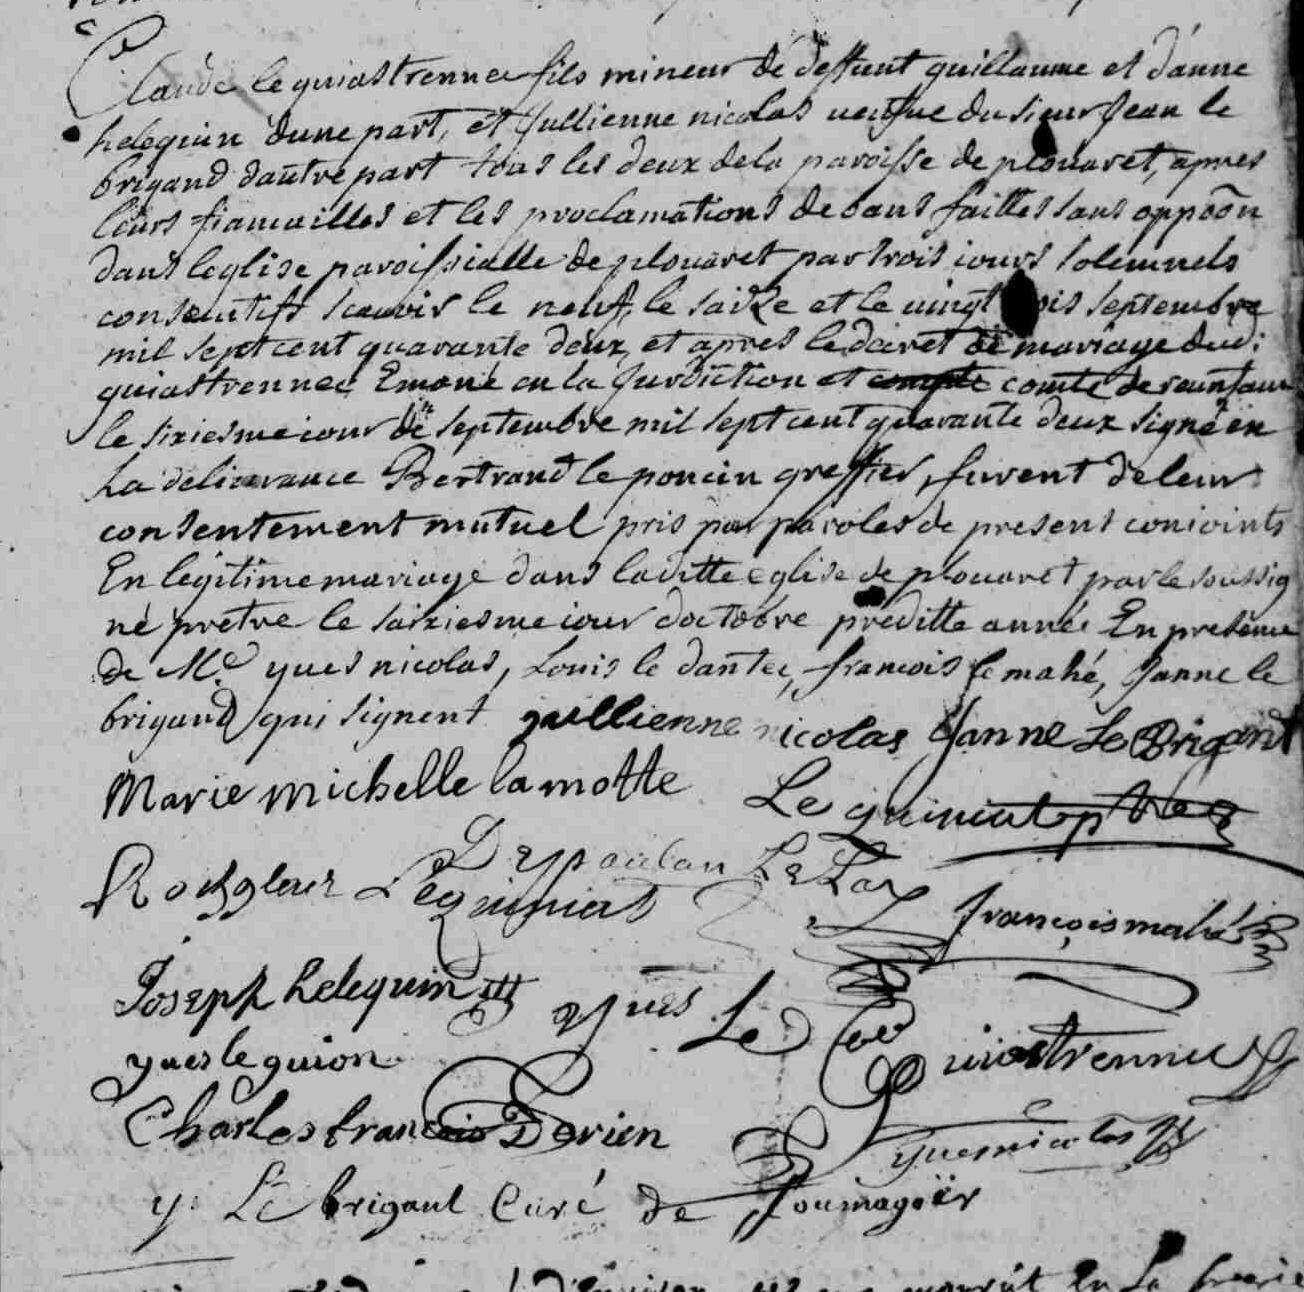 Claude le guiastrennec fils mineur de deffunt guillaume et d'anne
helequin dune part, et Jullienne nicolas veufue du sieur Jean le
brigand dautre part tous les deux de la paroisse de plouaret, apres
leurs fiancailles et les proclamations de bans faittes sans oppõon
dans leglise paroissialle de plouaret par trois iours solemnels
consecutifs scauoir le neuf, le saize et le uingt ois septembre
mil sept cent quarante deux, et apres le decret de mariage dud:
guiastrennec Emané en la Jurdiction et compte comte de
le sixiesme iour de septembre mil sept cent quarante deux signé en
la deliurance Bertrand le poncin greffier, furent de leur
consentement mutuel pris par paroles de present conioints
En legitime mariage dans laditte eglise de plouaret par le soussig
né prêtre le saiziesme iour doctobre preditte année En presence
de Me. yues nicolas, Louis le dantec, francois le mahé, Janne le
brigand qui signent juillienne nicolas Janne Le Brigant
Marie michelle lamotte Le
Le Lay
françois mahé
Joseph helequin yues Le
yues le guion Guiastrennec
Charles francois Derien yues nicolas
y. Le brigant Curé de